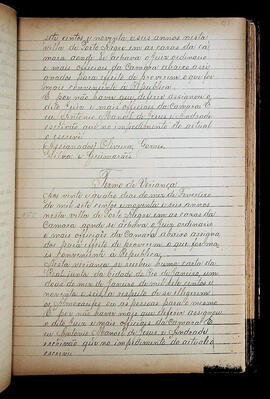 sete centos e noventa e seis annos nesta
villa de Porto Alegre em as cazas da ca-
mara aonde se achava o Juiz ordinario
e mais officiaes da Camara abaixo assi-
gnados para effeito de proverem o que for
mais conveniente à Republica.
E por não haver que deferir assignou o
dito Juiz e mais officiaes da Camara E
eu Antonio Manoel de Jesus e Andrade
escrivão que no impedimento do actual
o escrevi
(Assignados) Oliveira, Gomes,
e Guimarães
Termo de Veriança
Aos vinte e quatro dias do mez de Fevereiro
de mil sete centos e noventa e seis annos
nesta villa de Porto Alegre em as cazas da
Camara aonde se achava o Juiz ordinario
e mais officiaes da Camara abaixo assigna-
dos para effeito de proverem o que for ma-
is conveniente à Republica.
Nesta veriança se recebeu huma carta da
Real junta da cidade do Rio de Janeiro, um
doze do mez de Janeiro de mil sete centos e
noventa e seis a respeito de se
os Almoxarifes ou as pessoas para o mesmo
E por não haver mais que deferir assignou
o dito Juiz e mais officiaes da Camara E
eu Antonio Manoel de Jesus e Andrade
escrivão que no impedimento do actual o
escrevi